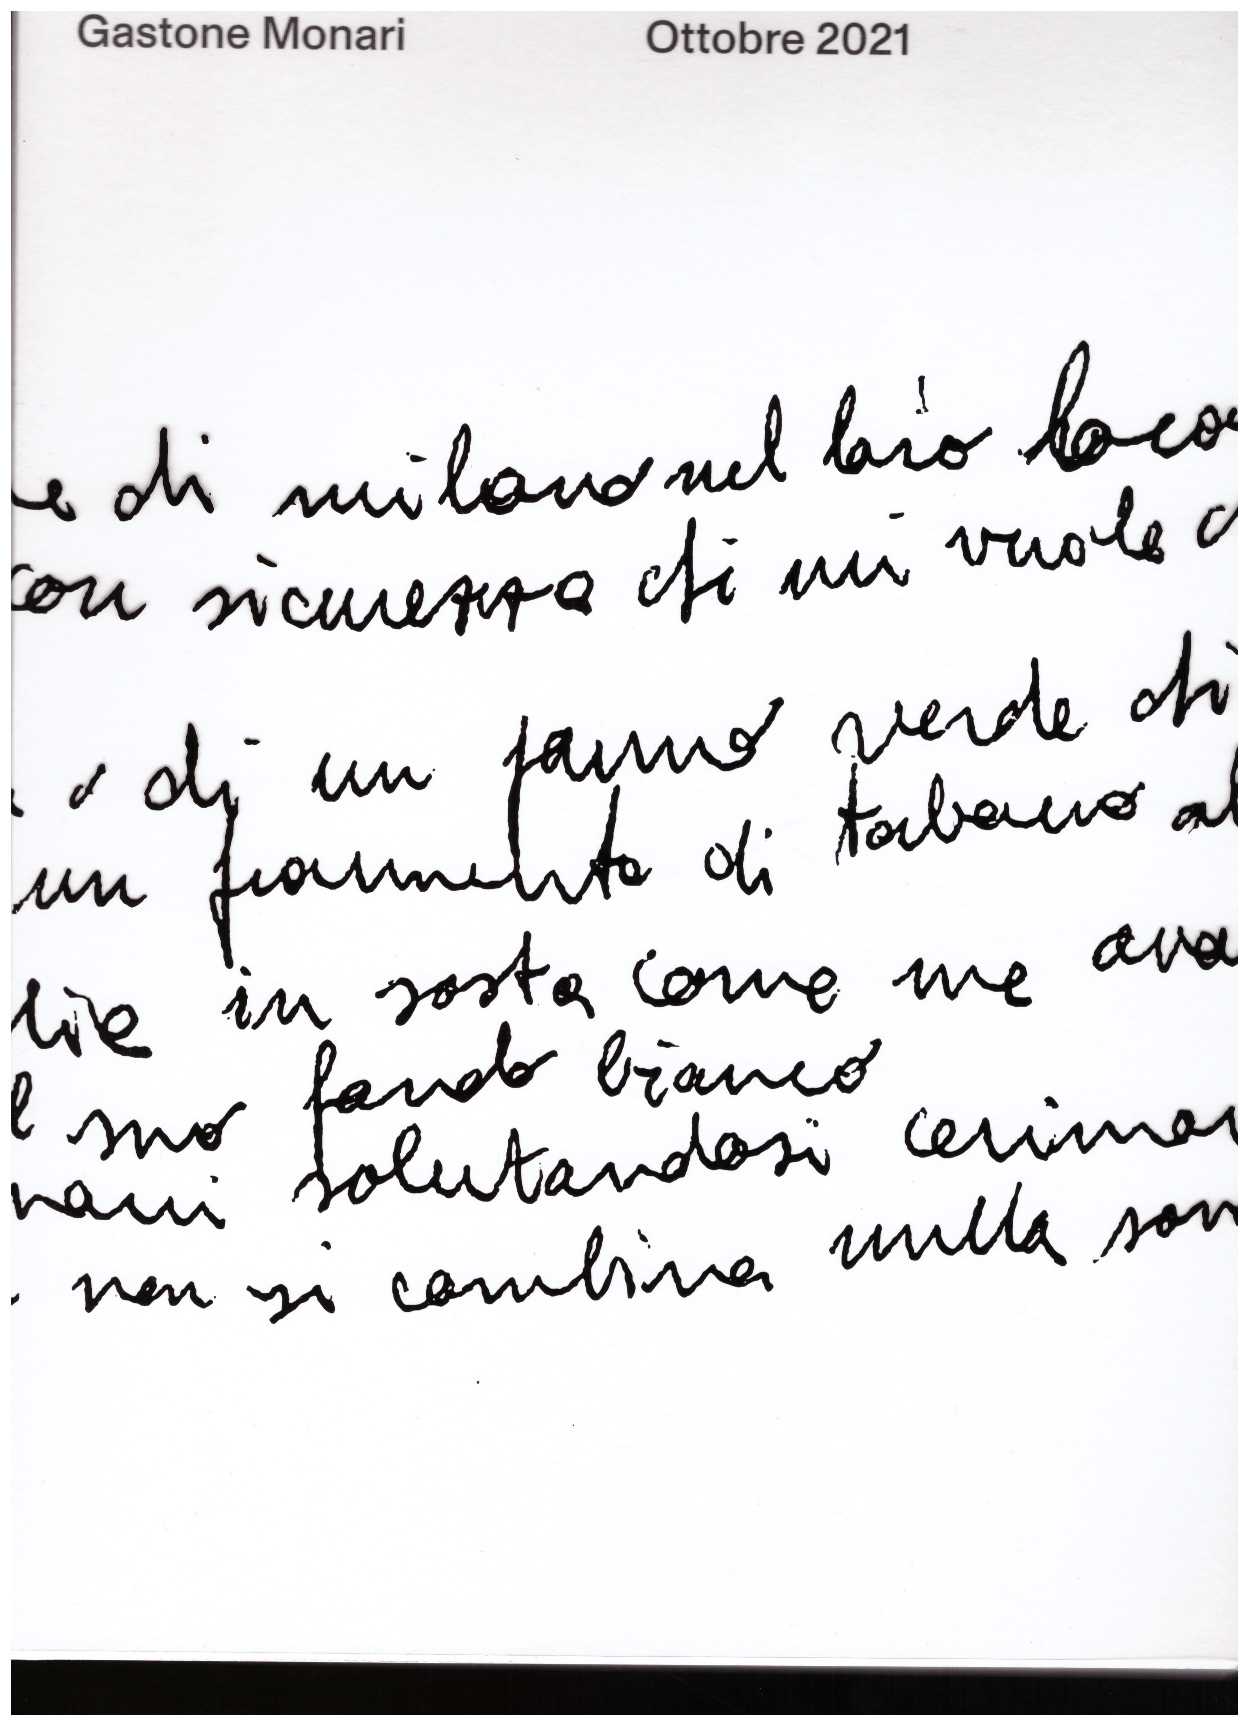 Gastone Monari Ottobre 2021
e di milano nel
con sicurezza di mi vuole
di un fauno verde di
un frammento di tabano al
in sosta come me ava
l suo fondo bianco
mani salutandosi cerimon
non si combina nulla son